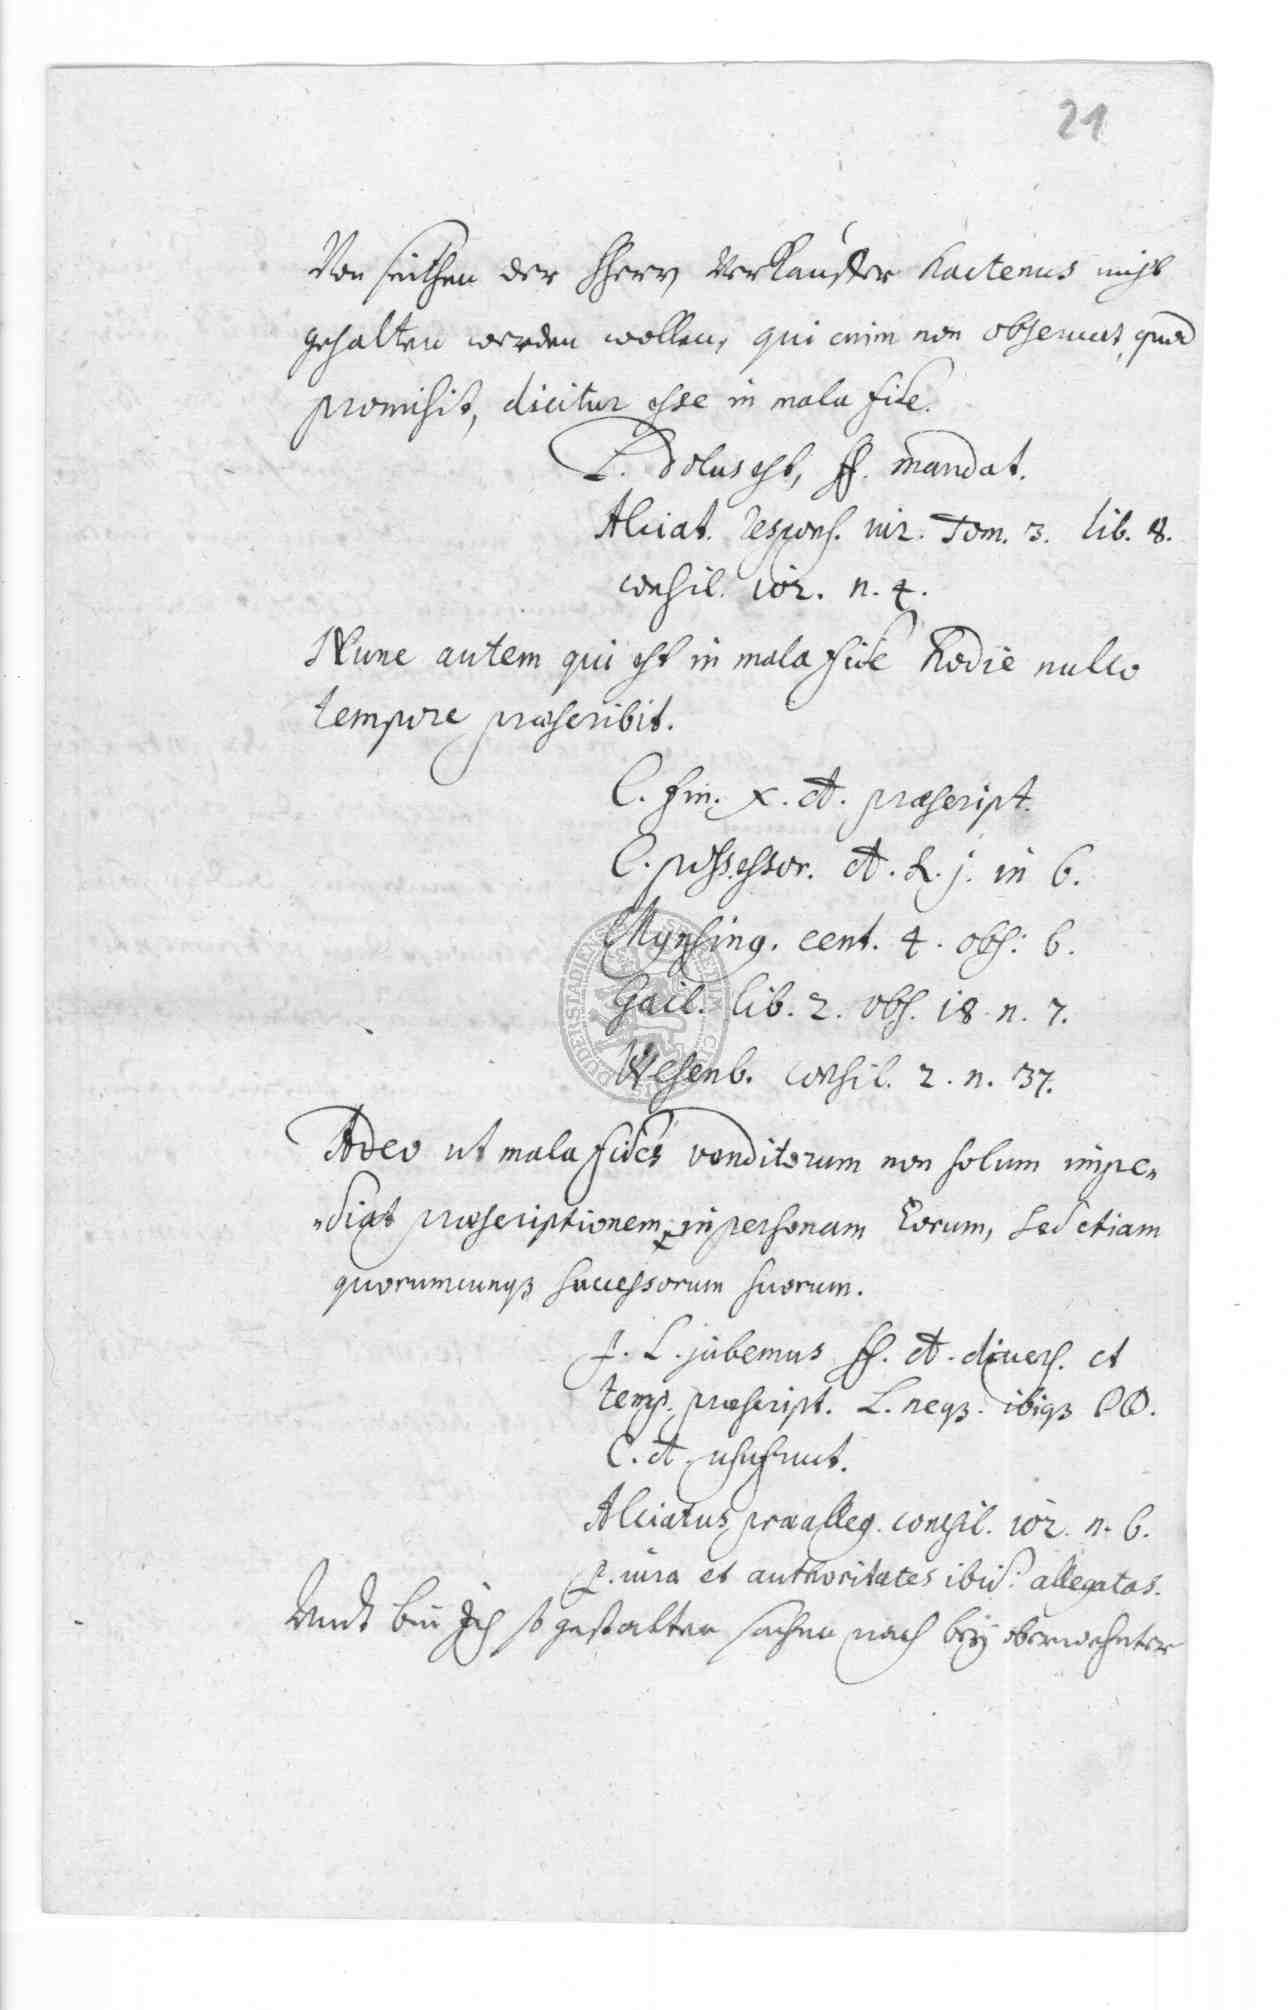 21
Von seithen der Herrn Verkauffer hactenus nicht
gehalten werden wollen, qui enim non observat, quod
promisit, dicitur esse in mala fide.
L. dolus est, ff. mandat.
Alciat. respons. iur. Tom. 3. lib. 8.
consil. 102. n. 4.
Nunc autem qui est in mala fide hodie nullo
tempore præscribit.
C. fin. X. de. præscript.
C. possessor. de. R. j. in 6.
Mynsing. cent. 4. obs: 6.
Gail. lib. 2. obs. 18. n. 7.
Wesenb. consil. 2. n. 37.
Adeo ut mala fides venditorum non solum impe„
„diat præscriptionem in personam Eorum, sed etiam
quorumcunqȝ successorum suorum.
L. jubemus ff. de. divers. et
temp. præscript. L. neqȝ. ibiqȝ DD.
C. de. usufruct.
Alciatus præalleg. consil. 102. n. 6.
p. iura et authoritates ibid: allegatas.
Undt bin Ich so gestalten sachen nach bey oberwehnter
DUDERSTADIENSIS